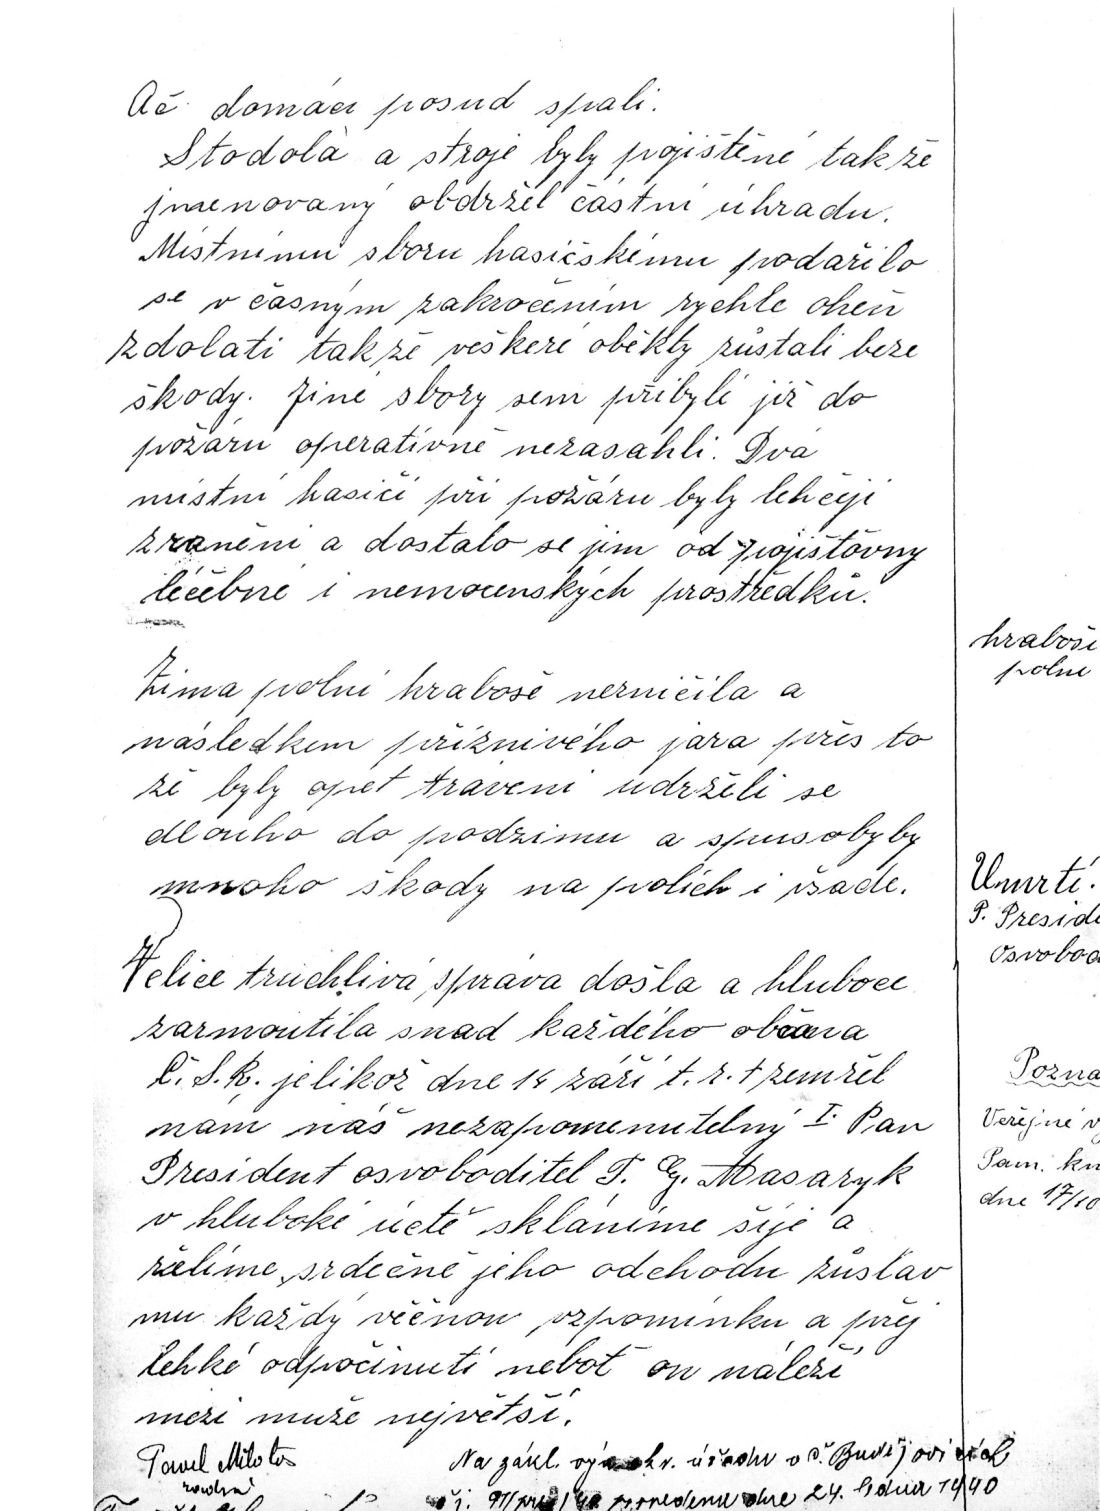 Ač domácí posud spali.
Stodola a stroje byly pojištěné takže
jmenovaný obdržel částní úhradu.
Místnímu sboru hasičskému podařilo
se v časným zakročením rychle oheň
zdolati takže veškeré oběkty zůstali beze
škody. Jiné sbory sem přibyli již do
požáru operativně nezasáhli. Dva
místní hasiči při požáru byly lehčeji
zraněni a dostalo se jim od pojišťovny
léčebné i nemocenských prostředků.
hraboši
polní
Zima polní hraboše nezničila a
následkem příznivého jara přes to
že byly opět tráveni udrželi se
dlouho do podzimu a spusobyby
mnoho škody na polích i vsade.
Úmrtí.
P. Presid
Osvobod
Velice truchlivá správa došla a hluboce
zarmoutila snad každého občana
Č.S.R. jelikož dne 14 září t.r. † zemřel
nám náš nezapomenutelný I. Pan
President osvoboditel T. G. Masaryk
v hluboké úctě skláníme šíje a
želíme srdečně jeho odchodu zůstav
mu každý věčnou vzpomínku a přej
lehké odpočinutí neboť on náleží
mezi muže největší.
Pozna
Veřejné v
Pam. kn
dne 17/10
Pavel Mikoláš
Na zákl. okr. úřadu v Č. Budějovicích
čj. provedeno dne 24. ledna 1940